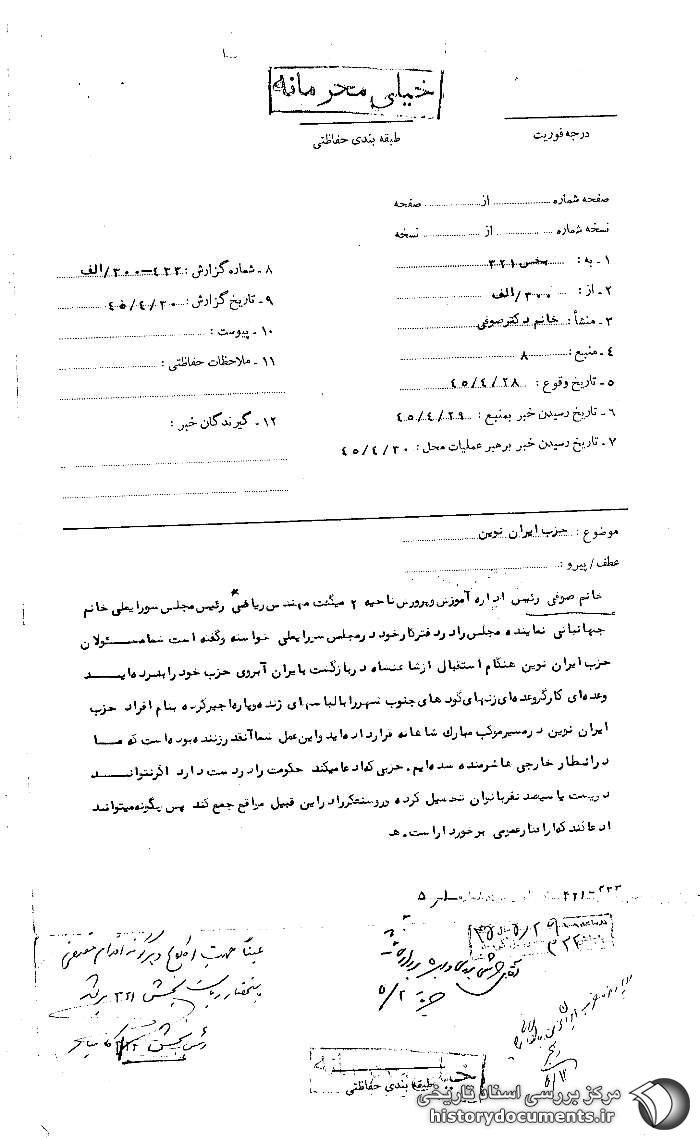 خیلی محرمانه
طبقه بندی حفاظتی
درجه فوریت
صفحه شماره از صفحه
نسخه شماره از نسخه
۱ - به : بخش ۳۲۱
۲ - از : ۳۰۰/الف
۳ - منشأ : خانم دکتر صوفی
۴ - منبع : ۸
۵ - تاریخ وقوع : ۴۵/۴/۲۸
۶ - تاریخ رسیدن خبر بمنبع : ۴۵/۴/۲۹
۷ - تاریخ رسیدن خبر برهبر عملیات محل : ۴۵/۴/۳۰
۸ - شماره گزارش : ۴۲۲-۳۰۰/الف
۹ - تاریخ گزارش : ۴۵/۴/۳۰
۱۰ - پیوست :
۱۱ - ملاحظات حفاظتی :
۱۲ - گیرندگان خبر :
موضوع : حزب ایران نوین
عطف/پیرو :
خانم صوفی رئیس اداره آموزش وپرورش ناحیه ۲ میگفت مهندس ریاضی* رئیس مجلس شورایملی خانم
جهانبانی نماینده مجلس را در دفتر کار خود در مجلس شورایملی خواسته وگفته است شما مسئولان
حزب ایران نوین هنگام استقبال از شاهنشاه در بازگشت بایران آبروی حزب خود را برده اید
وعده ای کارگر وعده ای زنهای گود های جنوب شهر را بالباسهای ژنده وپاره اجیر کرده بنام افراد حزب
ایران نوین در مسیر موکب مبارک شاهانه قرار داده اید واین عمل شما آنقدر زننده بوده است که ما
در انظار خارجی ها شرمنده شده ایم. حزبی که ادعا میکند حکومت را در دست دارد اگر نتواند
دویست یا سیصد نفر بانوان تحصیل کرده وروشنفکر را در این قبیل مواقع جمع کند پس چگونه میتواند
ادعا کند که از افکار عمومی برخوردار است. ه
عیناً جهت اطلاع و هرگونه اقدام مقتضی
بخش ۳۲۱
رئیس بخش
طبقه بندی حفاظتی
مرکز بررسی اسناد تاریخی
historydocuments.ir